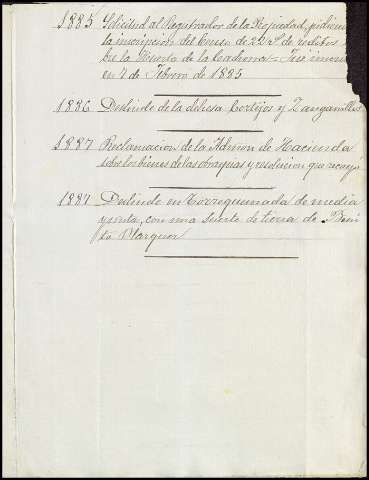 1885 Solicitud al Registrador de la Propiedad, pidiendo
la inscripcion del Censo de 22 rs. de reditos
bre la Huerta de la Cadena = Fue
en 7 de Febrero de 1885
1886 Deslinde de la dehesa Cortijos y Zanganillas
1887 Reclamacion de la Admon de Hacienda
sobre los bienes de las obras pias y resolucion que recayó
1887 Deslinde en Torrequemada de media
yunta, con una suerte de tierra de